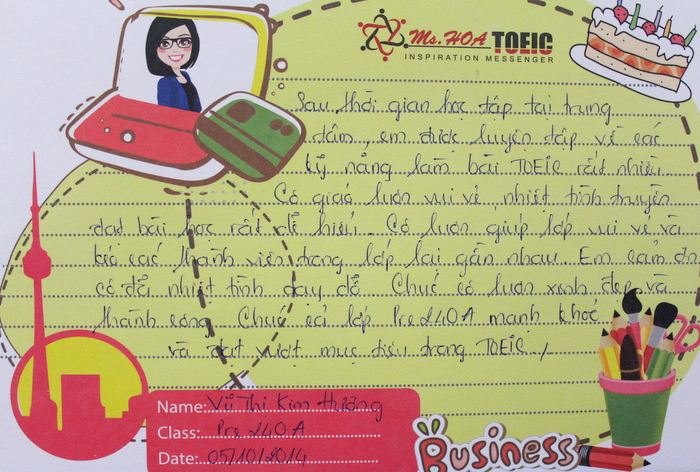 Ms. HOA TOEIC
INSPIRATION MESSENGER
Sau thời gian học tập tại trung
tâm, em được luyện tập về các
kỹ năng làm bài TOEIC rất nhiều
Cô giáo luôn vui vẻ, nhiệt tình truyền
đạt bài học rất dễ hiểu. Cô luôn giúp lớp vui vẻ và
kéo các thành viên trong lớp lại gần nhau. Em cảm ơn
cô đã nhiệt tình dạy dỗ. Chúc cô luôn xinh đẹp và
thành công. Chúc cả lớp Pre 240A mạnh khỏe
và đạt vượt mục tiêu trong TOEIC./
Name: Vũ Thị Kim Hương
Class: Pre 240 A
Date: 05/10/2014
Business